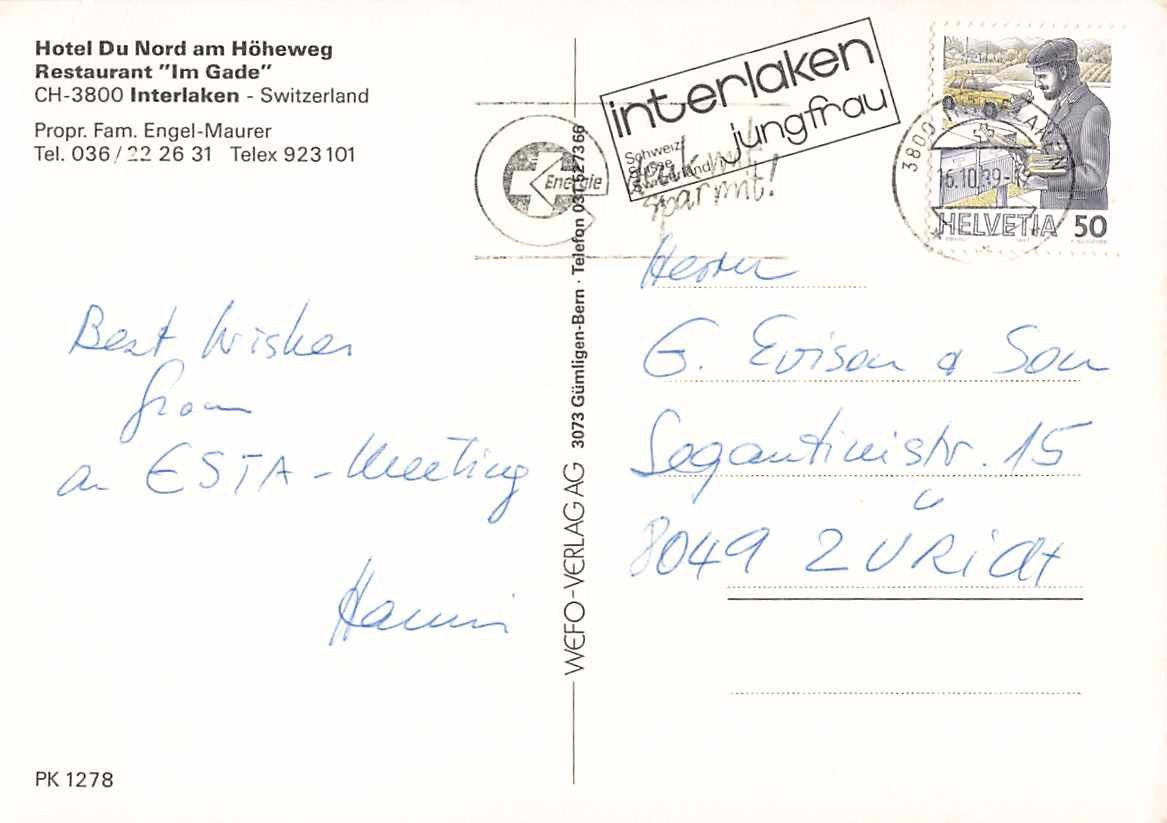 Hotel Du Nord am Höheweg
Restaurant "Im Gade"
CH-3800 Interlaken - Switzerland
Propr. Fam. Engel-Maurer
Tel. 036/22 26 31 Telex 923101
Best Wishes
from
an ESTA-Meeting
Hanni
PK 1278
WEFO-VERLAG AG 3073 Gümligen-Bern · Telefon 031 527366
Energie
sparmit!
interlaken
jungfrau
Schweiz
Suisse
Switzerland
3800 INTERLAKEN
16.10.89-12
HELVETIA 50
Herrn
G. Evison & Son
Segantinistr. 15
8049 ZÜRICH